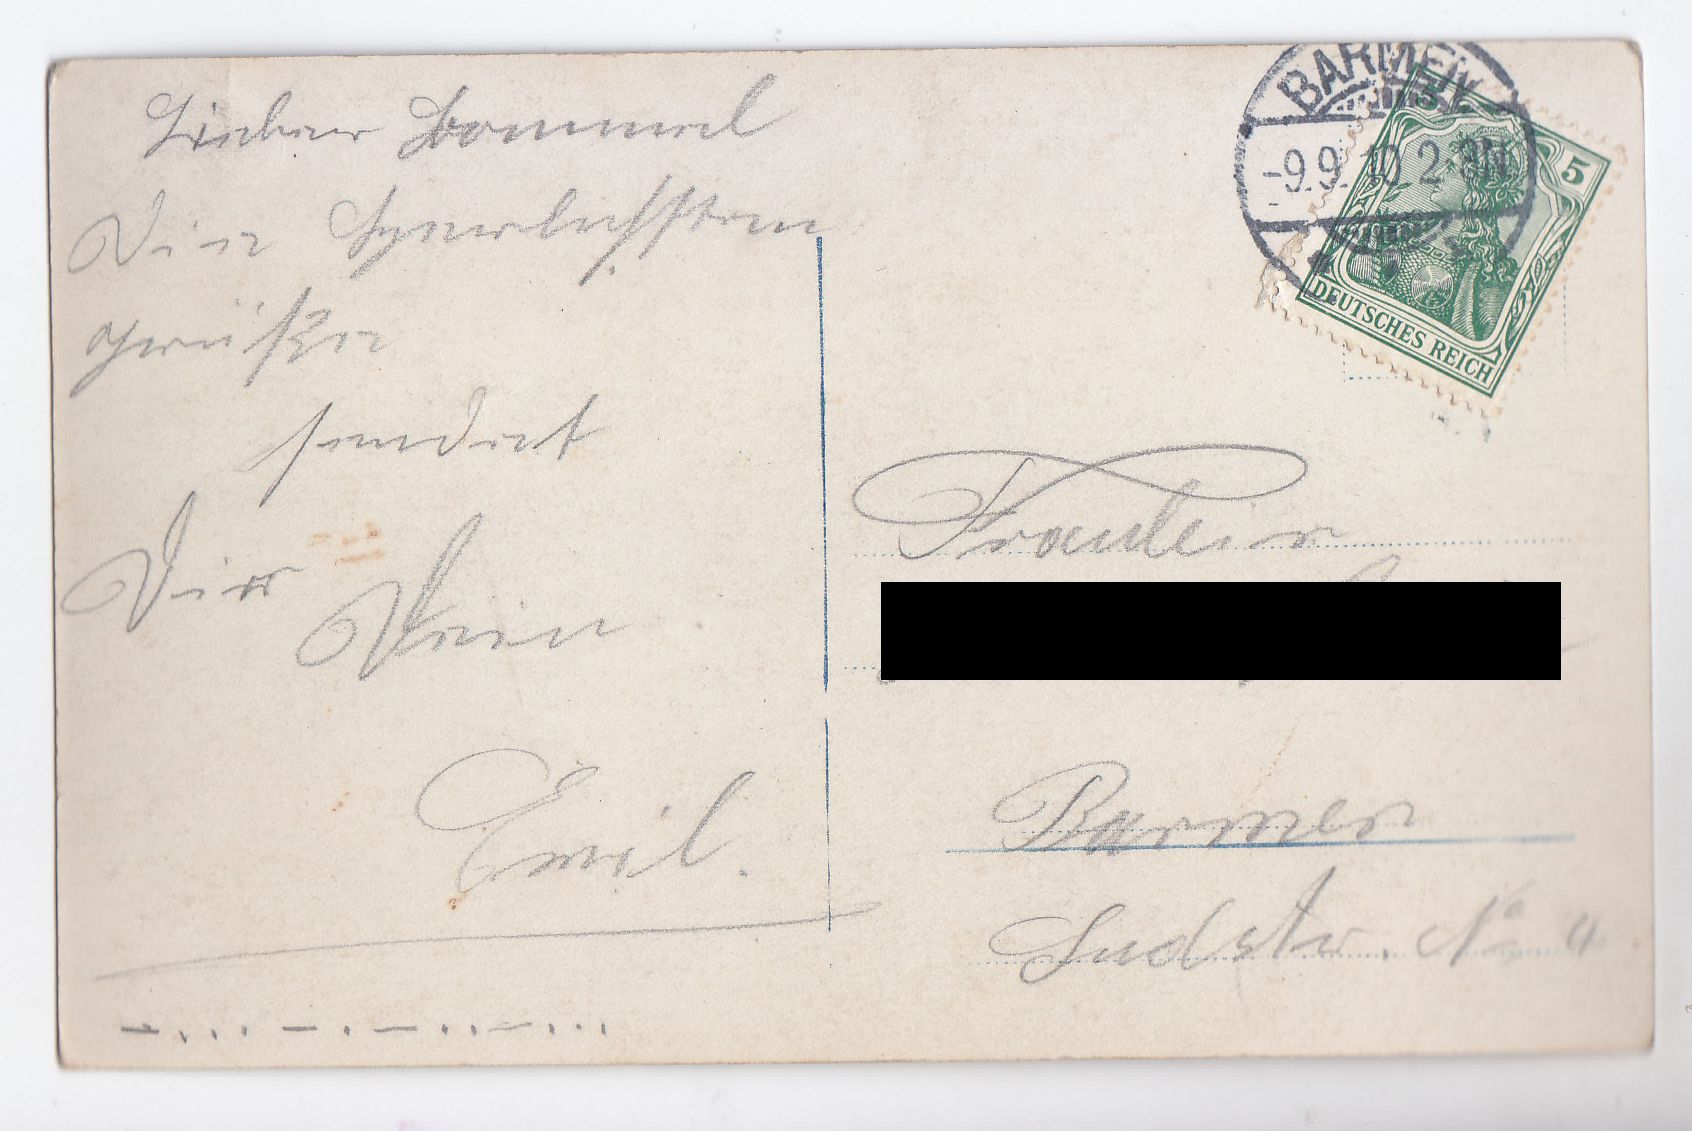 Lieber Bommel
Die herzlichsten
Grüße
sendet
Dir Dein
Emil.
BARMEN
-9.9.10 2-3N
5
5
DEUTSCHES REICH
Fraulein
Barmen
Sudstr. N